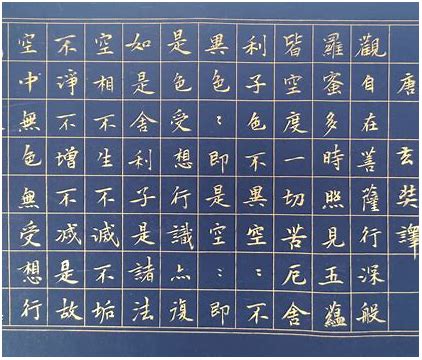 唐 玄奘譯
觀自在菩薩行深般
羅蜜多時照見五蘊
皆空度一切苦厄舍
利子色不異空：不
異色：即是空：即
是色受想行識亦復
如是舍利子是諸法
空相不生不滅不垢
不淨不增不减是故
空中無色無受想行